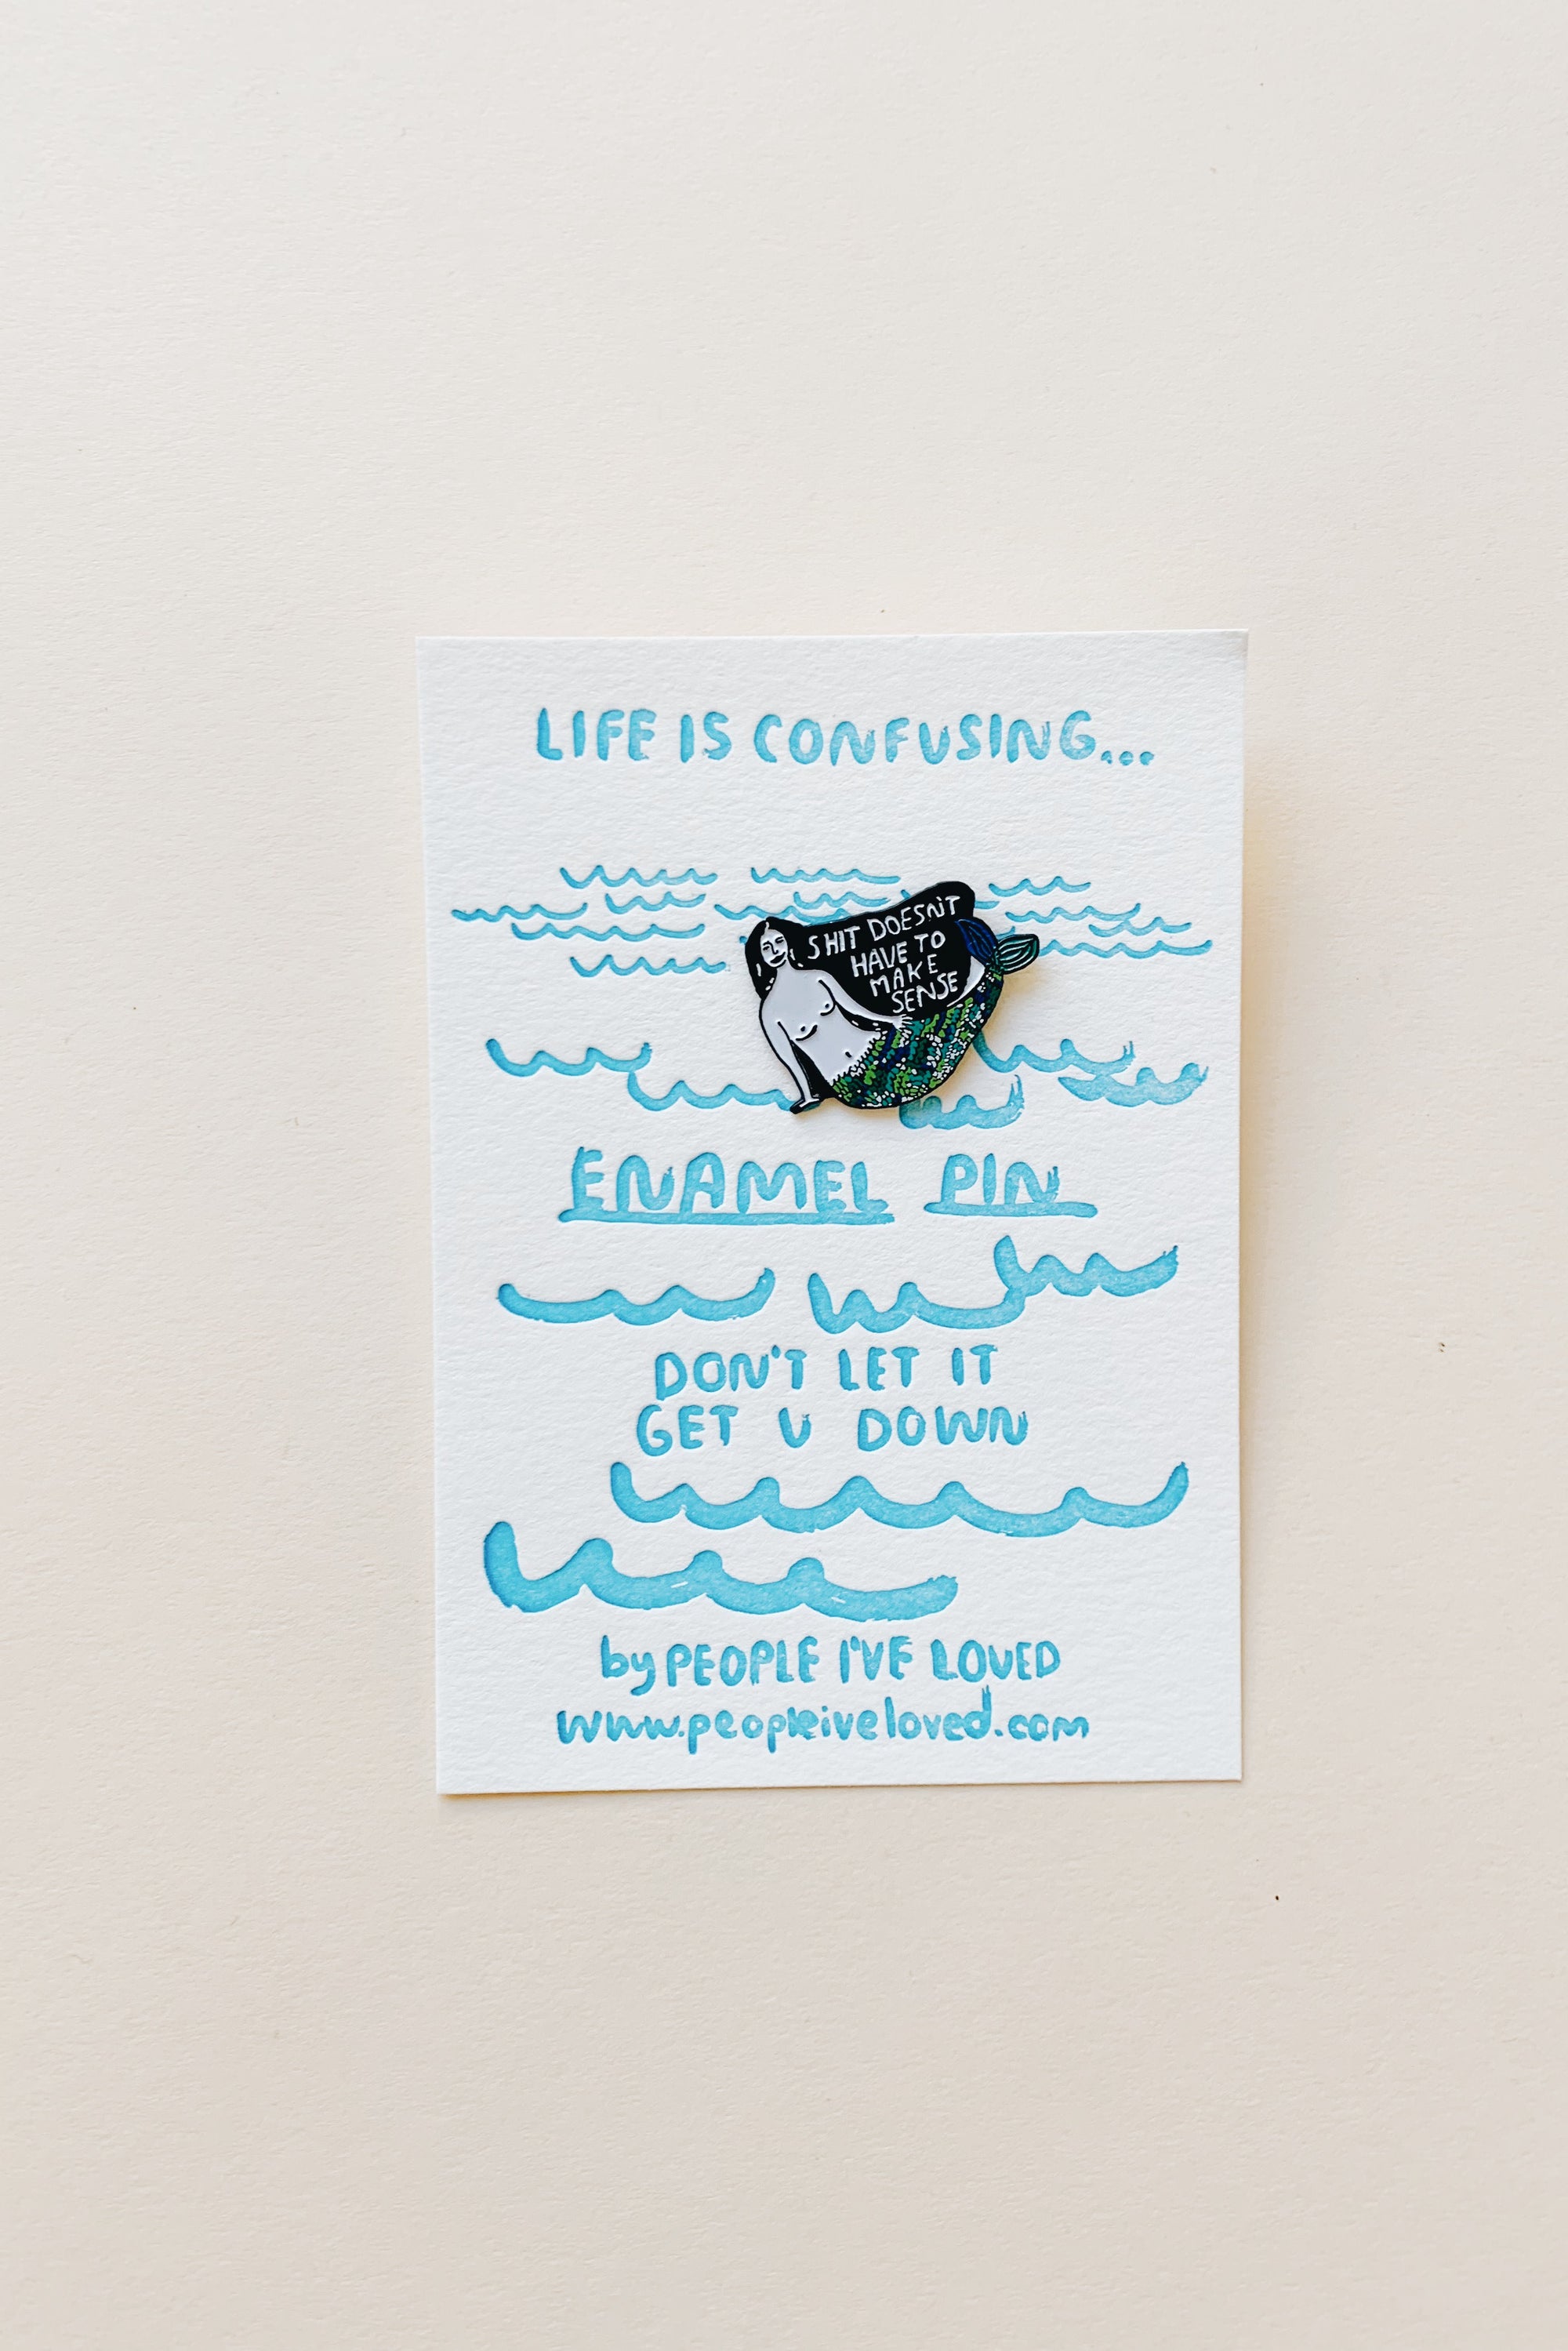 LIFE IS CONFUSING...
SHIT DOESN'T
HAVE TO
MAKE
SENSE
ENAMEL PIN
DON'T LET IT
GET U DOWN
by PEOPLE I'VE LOVED
www.peopleiveloved.com